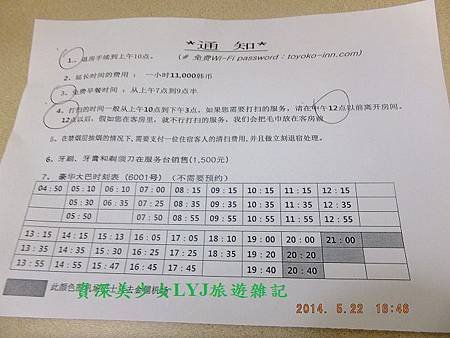 *通 知*
1、退房手续到上午10点。 (# 免费Wi-Fi password：toyoko-inn.com)
2、延长时间的费用： 一小时11,000韩币
3、免费早餐时间：从上午7点到9点半
4、打扫的时间一般从上午10点到下午3点。如果您需要打扫的服务，请在中午12点以前离开房间。
12点以后，假如您在客房里，就不行打扫的服务。我们会把毛巾放在客房前
5、在禁烟层抽烟的情况下，需要支付一位住宿客人的清扫费用，并且做立刻退宿处理。
6、牙刷、牙膏和剃须刀在服务台销售(1,500元)
7、豪华大巴时刻表 (6001号) (不需要预约)
04：50 05：10 06：10 07：00 08：15 09：15 10：15 11：15 12：15 13：15
05：30 06：35 07：25 08：35 09：35 10：35 11：35 12：35
05：50 07：50 08：55 09：55 10：55 11：55 12：55
13：15 14：15 15：13 16：05 17：05 18：10 19：00 20：00 21：00
13：35 14：35 15：30 16：25 17：25 18：35 19：20 20：20
13：55 14：55 15：47 16：45 17：45 19：40 20：40
此颜色
去金浦机场
資深美少女LYJ旅遊雜記
2014. 5.22 16:46